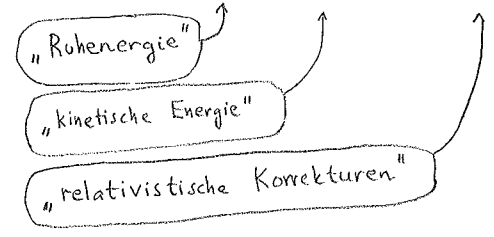 „Ruhenergie"
„kinetische Energie"
„relativistische Korrekturen"